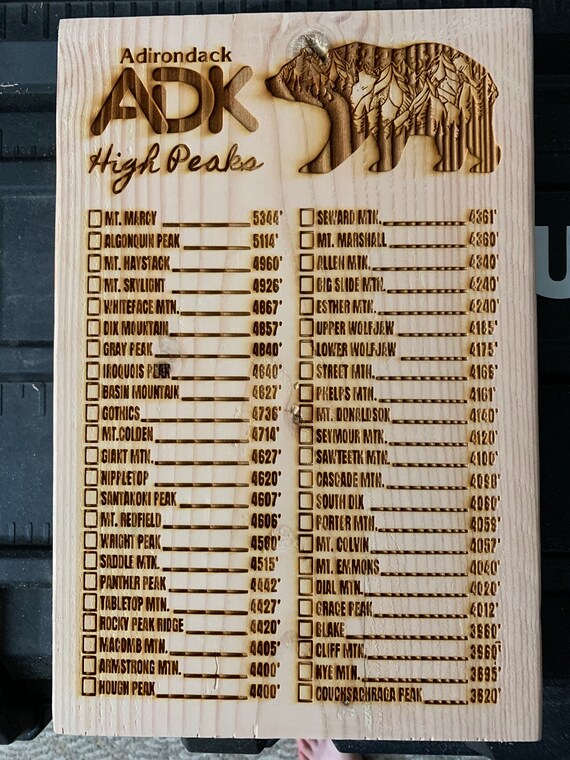 Adirondack
ADK
High Peaks
MT. MARCY 5344'
ALGONQUIN PEAK 5114'
MT. HAYSTACK 4960'
MT. SKYLIGHT 4926'
WHITEFACE MTN. 4867'
DIX MOUNTAIN 4857'
GRAY PEAK 4840'
IROQUOIS PEAK 4840'
BASIN MOUNTAIN 4827'
GOTHICS 4736'
MT.COLDEN 4714'
GIANT MTN. 4627'
NIPPLETOP 4620'
SANTANONI PEAK 4607'
MT. REDFIELD 4606'
WRIGHT PEAK 4580'
SADDLE MTN. 4515'
PANTHER PEAK 4442'
TABLETOP MTN. 4427'
ROCKY PEAK RIDGE 4420'
MACOMB MTN. 4405'
ARMSTRONG MTN. 4400'
HOUGH PEAK 4400'
SEWARD MTN. 4361'
MT. MARSHALL 4360'
ALLEN MTN. 4340'
BIG SLIDE MTN. 4240'
ESTHER MTN. 4240'
UPPER WOLFJAW 4185'
LOWER WOLFJAW 4175'
STREET MTN. 4166'
PHELPS MTN. 4161'
MT. DONALDSON 4140'
SEYMOUR MTN. 4120'
SAWTEETH MTN. 4100'
CASCADE MTN. 4098'
SOUTH DIX 4060'
PORTER MTN. 4059'
MT. COLVIN 4057'
MT. EMMONS 4040'
DIAL MTN. 4020'
GRACE PEAK 4012'
BLAKE 3960'
CLIFF MTN. 3960'
NYE MTN. 3895'
COUCHSACHRAGA PEAK 3820'